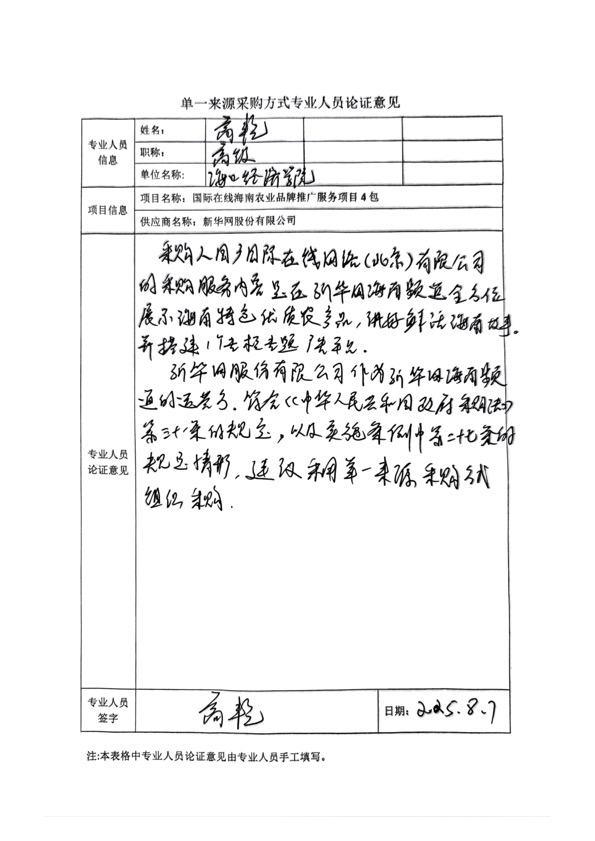 单一来源采购方式专业人员论证意见
专业人员信息
姓名：
职称：高级
单位名称：海口经济学院
项目信息
项目名称：国际在线海南农业品牌推广服务项目4包
供应商名称：新华网股份有限公司
专业人员论证意见
采购人国广国际在线网络（北京）有限公司
的采购服务内容是在新华网海南频道全方位
展示海南特色优质农产品，讲好鲜活海南故事。
并搭建1个专栏专题
新华网股份有限公司作为新华网海南频
道的运营方，符合《中华人民共和国政府采购法》
第三十一条的规定，以及实施条例中第二十七条的
规定情形，建议采用单一来源采购方式
组织采购.
专业人员签字
日期：2025.8.7
注:本表格中专业人员论证意见由专业人员手工填写。